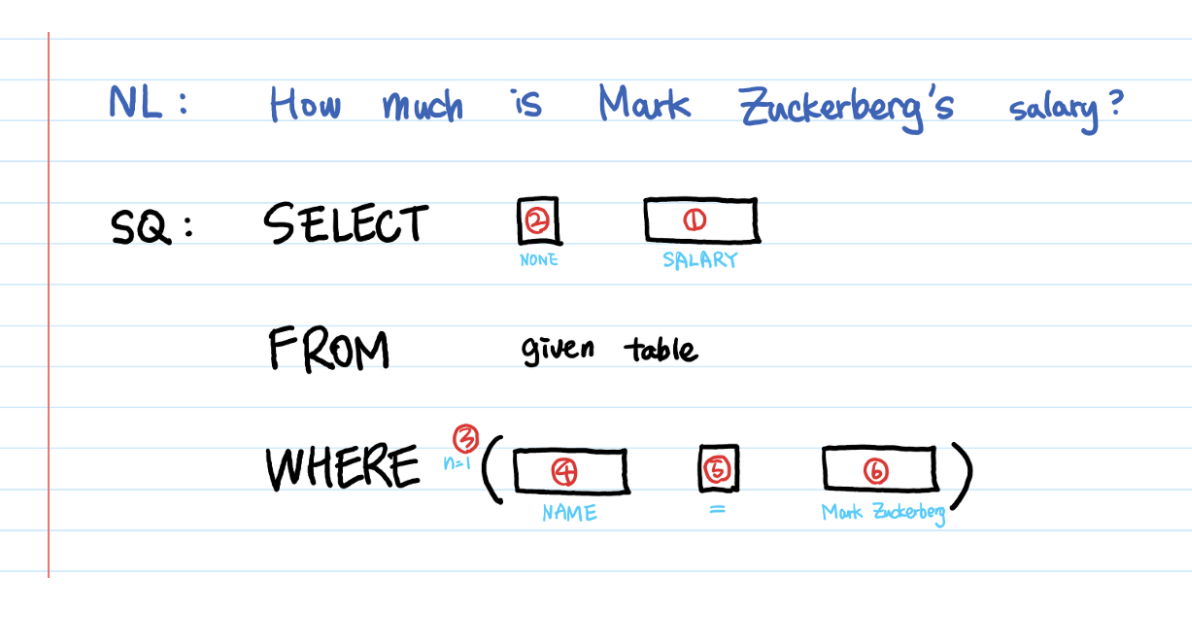 NL : How much is Mark Zuckerberg's salary?
SQ : SELECT ② ①
NONE SALARY
FROM given table
WHERE ③ n=1 ( ④ ⑤ ⑥ )
NAME = Mark Zuckerberg